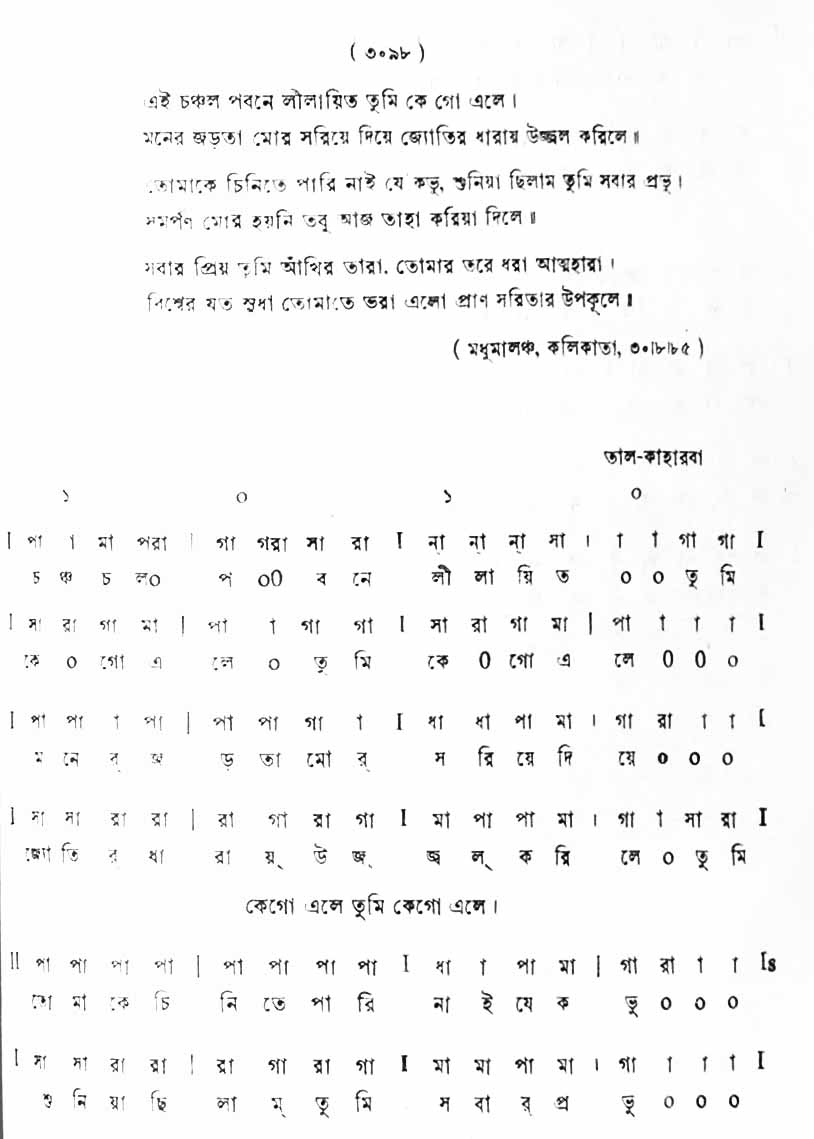 ( ৩০৯৮ )
এই চঞ্চল পবনে লীলায়িত তুমি কে গো এলে।
মনের জড়তা মোর সরিয়ে দিয়ে জ্যোতির ধারায় উজ্জ্বল করিলে॥
তোমাকে চিনিতে পারি নাই যে কভু, শুনিয়া ছিলাম তুমি সবার প্রভু।
সমর্পণ মোর হয়নি তবু আজ তাহা করিয়া দিলে॥
সবার প্রিয় তুমি আঁখির তারা, তোমার তরে ধরা আত্মহারা।
বিশ্বের যত সুধা তোমাতে ভরা এলো প্রাণ সরিতার উপকূলে॥
( মধুমালঞ্চ, কলিকাতা, ৩০।৮।৮৫ )
তাল-কাহারবা
১ ০ ১ ০
I পা া মা পরা | গা গরা সা রা I না্ না্ না্ সা । া া গা গা I
চ ঞ্চ চ ল০ প ০০ ব নে লী লা য়ি ত ০ ০ তু মি
I সা রা গা মা | পা া গা গা I সা রা গা মা | পা া া া I
কে ০ গো এ লে ০ তু মি কে ০ গো এ লে ০ ০ ০
I পা পা া পা | পা পা গা া I ধা ধা পা মা । গা রা া া I
ম নে র্ জ ড় তা মো র্ স রি য়ে দি য়ে ০ ০ ০
I সা সা রা রা | রা গা রা গা I মা পা পা মা । গা া সা রা I
জ্যো তি র ধা রা য়্ উ জ্ জ্ব ল্ ক রি লে ০ তু মি
কেগো এলে তুমি কেগো এলে।
II পা পা পা পা | পা পা পা পা I ধা া পা মা | গা রা া া Is
তো মা কে চি নি তে পা রি না ই যে ক ভু ০ ০ ০
I সা সা রা রা | রা গা রা গা I মা মা পা মা । গা া া া I
শু নি য়া ছি লা ম্ তু মি স বা র্ প্র ভু ০ ০ ০